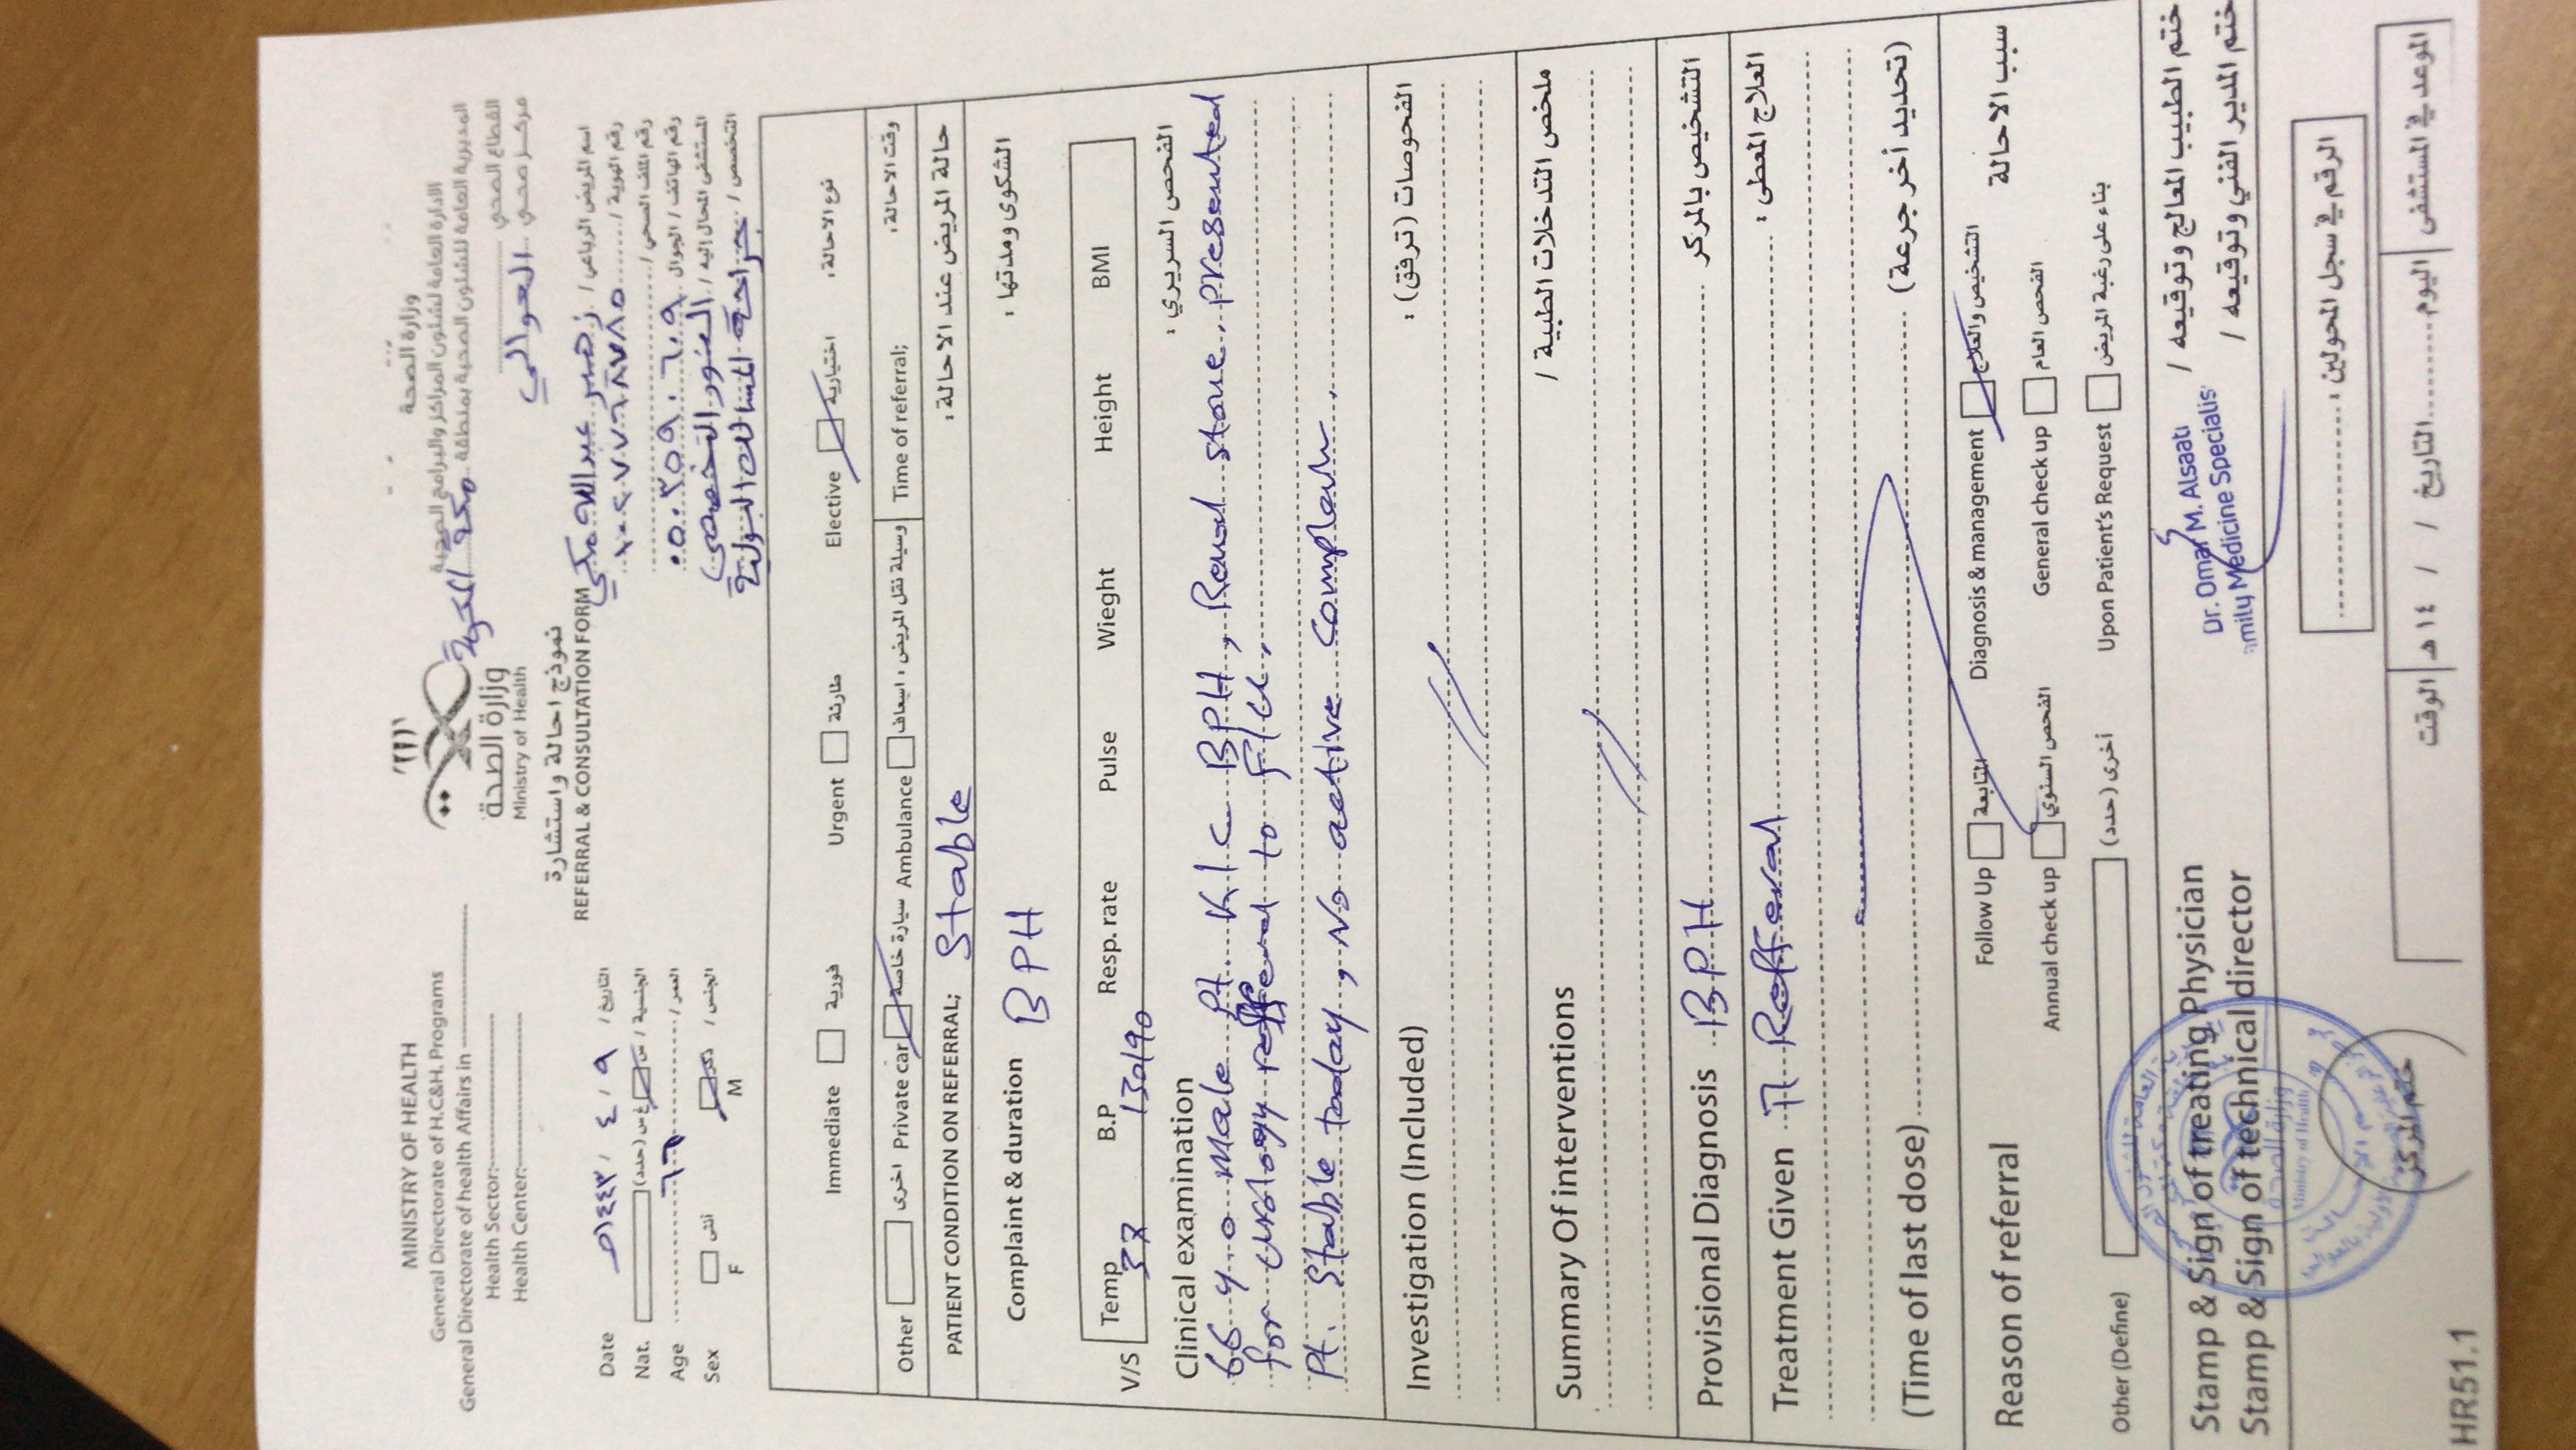 MINISTRY OF HEALTH
General Directorate of H.C&H. Programs
General Directorate of health Affairs in
Health Sector:
Health Center:
وزارة الصحة
Ministry of Health
وزارة الصحة
الادارة العامة لشئون المراكز والبرامج الصحية
المديرية العامة للشئون الصحية بمنطقة مكة المكرمة
القطاع الصحي
مركز صحي العوالي
نموذج احالة واستشارة
REFERRAL & CONSULTATION FORM
اسم المريض الرباعي / زهير عبدالله مكي
رقم الهوية /
رقم الملف الصحي /
رقم الهاتف / الجوال ٠٥٠٣٥٩٠٦٠٩
المستشفى المحال إليه / التخصصي
التخصص / جراحة المسالك البولية
Date ٩ / ٤ / ١٤٤٣هـ التاريخ /
Nat. (حدد) غ س س الجنسية /
Age العمر /
Sex أنثى ذكر الجنس /
F M
Immediate فورية Urgent طارئة Elective اختيارية نوع الاحالة:
Other اخرى Private car سيارة خاصة Ambulance اسعاف وسيلة نقل المريض: Time of referral; وقت الاحالة:
PATIENT CONDITION ON REFERRAL; Stable حالة المريض عند الاحالة:
Complaint & duration BPH الشكوى ومدتها:
V/S Temp B.P Resp. rate Pulse Wieght Height BMI
37 130/90
Clinical examination الفحص السريري:
66 y.o male pt. K/C BPH, Renal stone. presented
for urology refferal to F/U.
Pt. Stable today, No active
Investigation (Included) الفحوصات (ترفق):
Summary Of interventions ملخص التدخلات الطبية /
Provisional Diagnosis BPH التشخيص بالمركز
Treatment Given Refferal العلاج المعطى:
(Time of last dose) (تحديد أخر جرعة)
Reason of referral Follow Up المتابعة Diagnosis & management التشخيص والعلاج سبب الاحالة
Annual check up الفحص السنوي General check up الفحص العام
Other (Define) أخرى (حدد) Upon Patient's Request بناء على رغبة المريض
Stamp & Sign of treating Physician Dr. Omar M. Alsaati ختم الطبيب المعالج وتوقيعه /
Stamp & Sign of technical director mily Medicine Specialis ختم المدير الفني وتوقيعه /
وزارة الصحة
Ministry of Health
الرقم في سجل المحولين:
ختم المركز
الموعد في المستشفى اليوم التاريخ / / ١٤ هـ الوقت
HR51.1